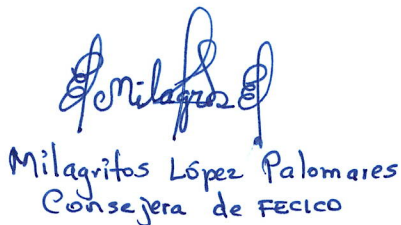 Milagros
Milagritos López Palomares
Consejera de FECICO